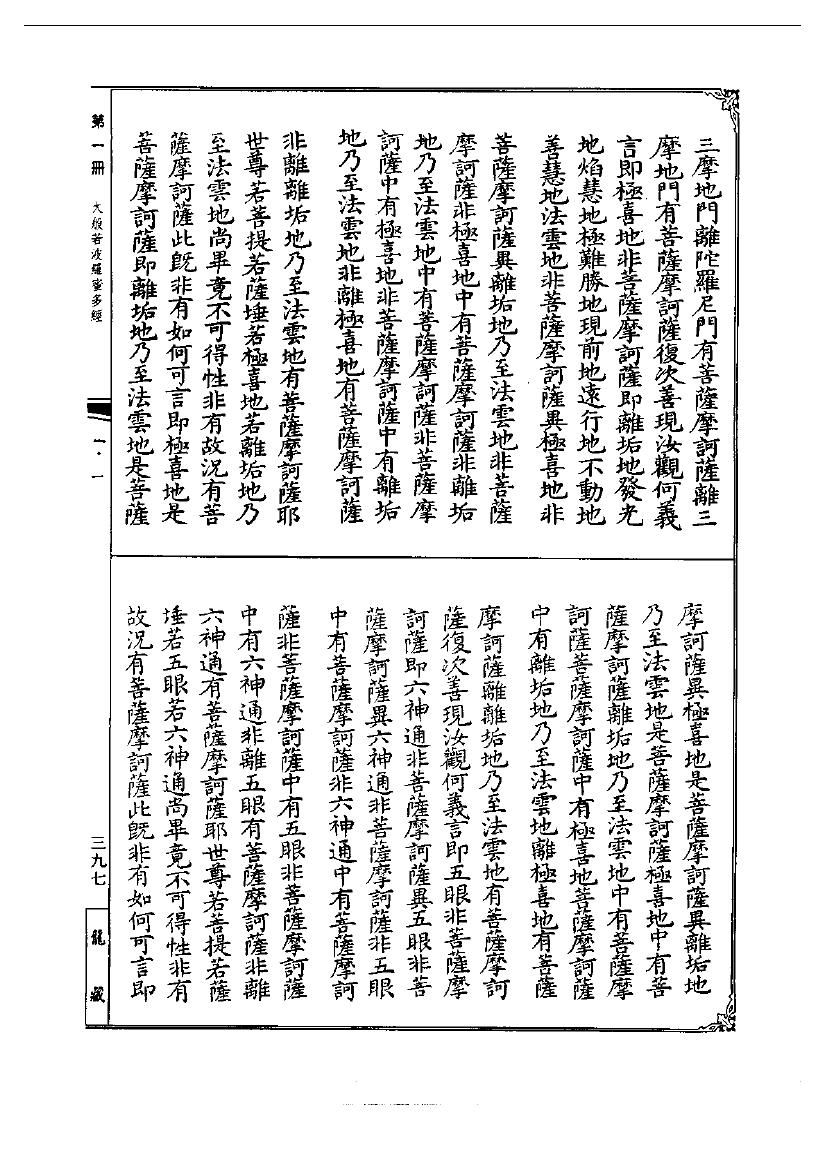 三摩地門離陀羅尼門有菩薩摩訶薩離三
摩地門有菩薩摩訶薩復次善現汝觀何義
言即極喜地非菩薩摩訶薩即離垢地發光
地焰慧地極難勝地現前地遠行地不動地
善慧地法雲地非菩薩摩訶薩異極喜地非
菩薩摩訶薩異離垢地乃至法雲地非菩薩
摩訶薩非極喜地中有菩薩摩訶薩非離垢
地乃至法雲地中有菩薩摩訶薩非菩薩摩
訶薩中有極喜地非菩薩摩訶薩中有離垢
地乃至法雲地非離極喜地有菩薩摩訶薩
非離離垢地乃至法雲地有菩薩摩訶薩耶
世尊若菩提若薩埵若極喜地若離垢地乃
至法雲地尚畢竟不可得性非有故況有菩
薩摩訶薩此既非有如何可言即極喜地是
菩薩摩訶薩即離垢地乃至法雲地是菩薩
摩訶薩異極喜地是菩薩摩訶薩異離垢地
乃至法雲地是菩薩摩訶薩極喜地中有菩
薩摩訶薩離垢地乃至法雲地中有菩薩摩
訶薩菩薩摩訶薩中有極喜地菩薩摩訶薩
中有離垢地乃至法雲地離極喜地有菩薩
摩訶薩離離垢地乃至法雲地有菩薩摩訶
薩復次善現汝觀何義言即五眼非菩薩摩
訶薩即六神通非菩薩摩訶薩異五眼非菩
薩摩訶薩異六神通非菩薩摩訶薩非五眼
中有菩薩摩訶薩非六神通中有菩薩摩訶
薩非菩薩摩訶薩中有五眼非菩薩摩訶薩
中有六神通非離五眼有菩薩摩訶薩非離
六神通有菩薩摩訶薩耶世尊若菩提若薩
埵若五眼若六神通尚畢竟不可得性非有
故況有菩薩摩訶薩此既非有如何可言即
第一冊 大般若波羅蜜多經 一·一 三九七 龍藏